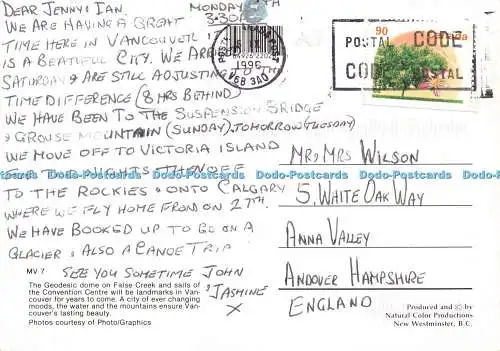 DEAR JENNY & IAN. MONDAY 5TH
3.30A
WE ARE HAVING A GREAT
TIME HERE IN VANCOUVER IT
IS A BEATIFUL CITY. WE ARE
SATURDAY & ARE STILL ADJUSTING TO TH
TIME DIFFERENCE (8 HRS BEHIND)
WE HAVE BEEN TO THE SUSPENSION BRIDGE
& GROUSE MOUNTAIN (SUNDAY). TOMORROW (TUESDAY)
WE MOVE OFF TO VICTORIA ISLAND
NIGHTS. THEN OFF
TO THE ROCKIES & ONTO CALGARY
WHERE WE FLY HOME FROM ON 27TH.
WE HAVE BOOKED UP TO GO ON A
GLACIER & ALSO A CANOE TRIP
SEE YOU SOMETIME JOHN
& JASMINE
X
MV 7
The Geodesic dome on False Creek and sails of
the Convention Centre will be landmarks in Van-
couver for years to come. A city of ever changing
moods, the water and the mountains ensure Van-
couver's lasting beauty.
Photos courtesy of Photo/Graphics
1996
V6B 3A0
90
Canada
POSTAL CODE
CODE POSTAL
MR & MRS WILSON
5. WHITE OAK WAY
ANNA VALLEY
ANDOVER HAMPSHIRE
ENGLAND
Produced and © by
Natural Color Productions
New Westminster, B.C.
Dodo-Postcards Dodo-Postcards Dodo-Postcards Dodo-Postcards Dodo-Postcards